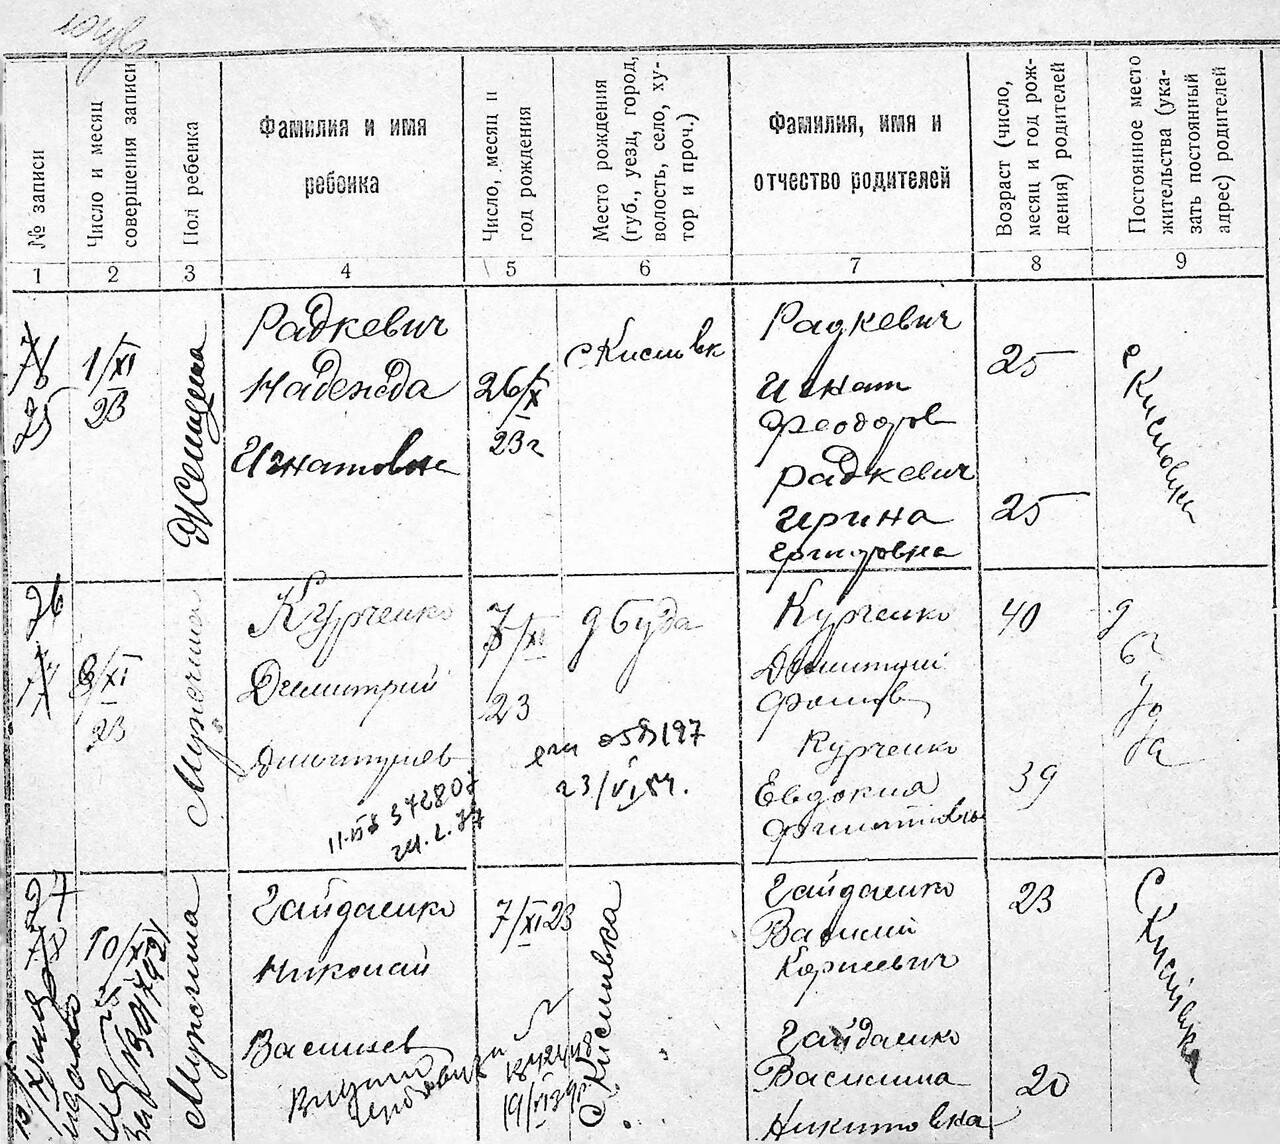 № записи
Число и месяц
совершения записи
Пол ребенка
Фамилия и имя
ребенка
Число, месяц и
год рождения
Место рождения
(губ., уезд, город,
волость, село, ху-
тор и проч.)
Фамилия, имя и
отчество родителей
Возраст (число,
месяц и год рож-
дения) родителей
Постоянное место
жительства (ука-
зать постоянный
адрес) родителей
1 2 3 4 5 6 7 8 9
75
1/XI
23
Женщина
Радкевич
Надежда
Игнатовна
26/X
23г
с Кисловк
Радкевич
Игнат
Феодоров
Радкевич
Ирина
Григоровна
25
25
с Кисловки
76
8/XI
23
Мужчина
Курченко
Димитрий
Дмитриев
7/XI
23
д Буда
23/VI 54.
24.2.77
Курченко
Димитрий
Фомов
Курченко
Евдокия
Филиповна
40
39
д
Буда
77
10/XI
Мужчина
Гайдаенко
Николай
Васильев
7/XI 23
с Кисливка
Гайдаенко
Василий
Корнеевич
Гайдаенко
Василина
Никитовна
23
20
С Кислівка